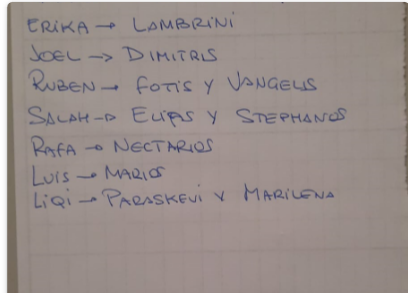 ERIKA → LAMBRINI
JOEL → DIMITRIS
RUBEN → FOTIS Y VANGELIS
SALAH → ELIAS Y STEPHANOS
RAFA → NECTARIOS
LUIS → MARIOS
LIQI → PARASKEVI Y MARILENA